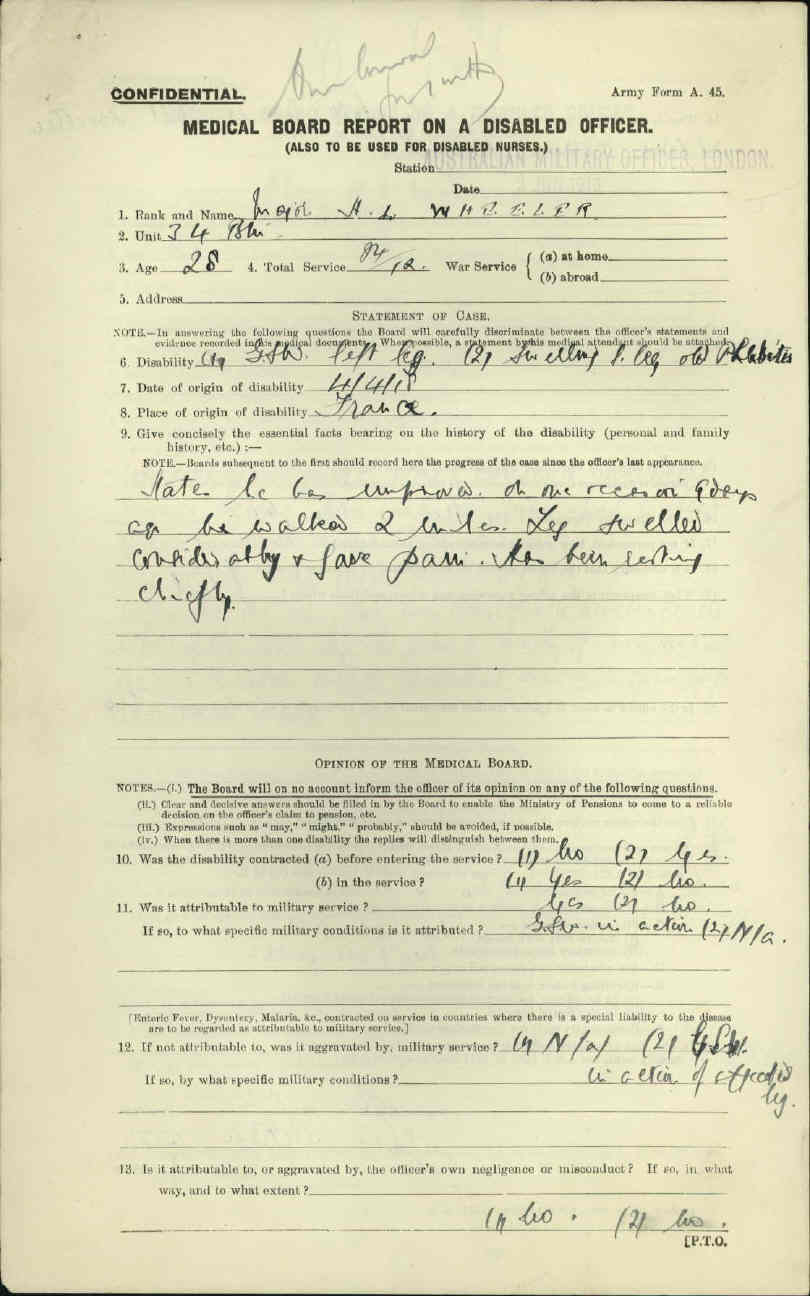 CONFIDENTIAL.
Army Form A. 45.
MEDICAL BOARD REPORT ON A DISABLED OFFICER.
(ALSO TO BE USED FOR DISABLED NURSES.)
AUSTRALIAN MILITARY OFFICES, LONDON.
Station
Date
1. Rank and Name Major H. L WHEELER
2. Unit 34 Btn
3. Age 28 4. Total Service /12. War Service { (a) at home
(b) abroad
5. Address
STATEMENT OF CASE.
NOTE.—In answering the following questions the Board will carefully discriminate between the officer's statements and
evidence recorded in his medical documents. When possible, a statement by his medical attendant should be attached.
6. Disability (1) G.S.W. left leg. (2) Swelling l. leg old Phlebitis
7. Date of origin of disability 4/4/18
8. Place of origin of disability France.
9. Give concisely the essential facts bearing on the history of the disability (personal and family
history, etc.) :—
NOTE.—Boards subsequent to the first should record here the progress of the case since the officer's last appearance.
States he has improved. On one occasion 9 days
ago he walked 2 miles. Leg swelled
considerably & gave pain. Has been resting
chiefly.
OPINION OF THE MEDICAL BOARD.
NOTES.—(i.) The Board will on no account inform the officer of its opinion on any of the following questions.
(ii.) Clear and decisive answers should be filled in by the Board to enable the Ministry of Pensions to come to a reliable
decision on the officer's claim to pension, etc.
(iii.) Expressions such as "may," "might," "probably," should be avoided, if possible.
(iv.) When there is more than one disability the replies will distinguish between them.
10. Was the disability contracted (a) before entering the service? (1) No (2) Yes.
(b) in the service? (1) Yes (2) No.
11. Was it attributable to military service? Yes (2) No.
If so, to what specific military conditions is it attributed? G.S.W. in action (2) N/a.
[Enteric Fever, Dysentery, Malaria, &c., contracted on service in countries where there is a special liability to the disease
are to be regarded as attributable to military service.]
12. If not attributable to, was it aggravated by, military service? (1) N/a) (2) G.S.W.
If so, by what specific military conditions? in action of affected
leg.
13. Is it attributable to, or aggravated by, the officer's own negligence or misconduct? If so, in what
way, and to what extent?
(1) No. (2) No.
[P.T.O.